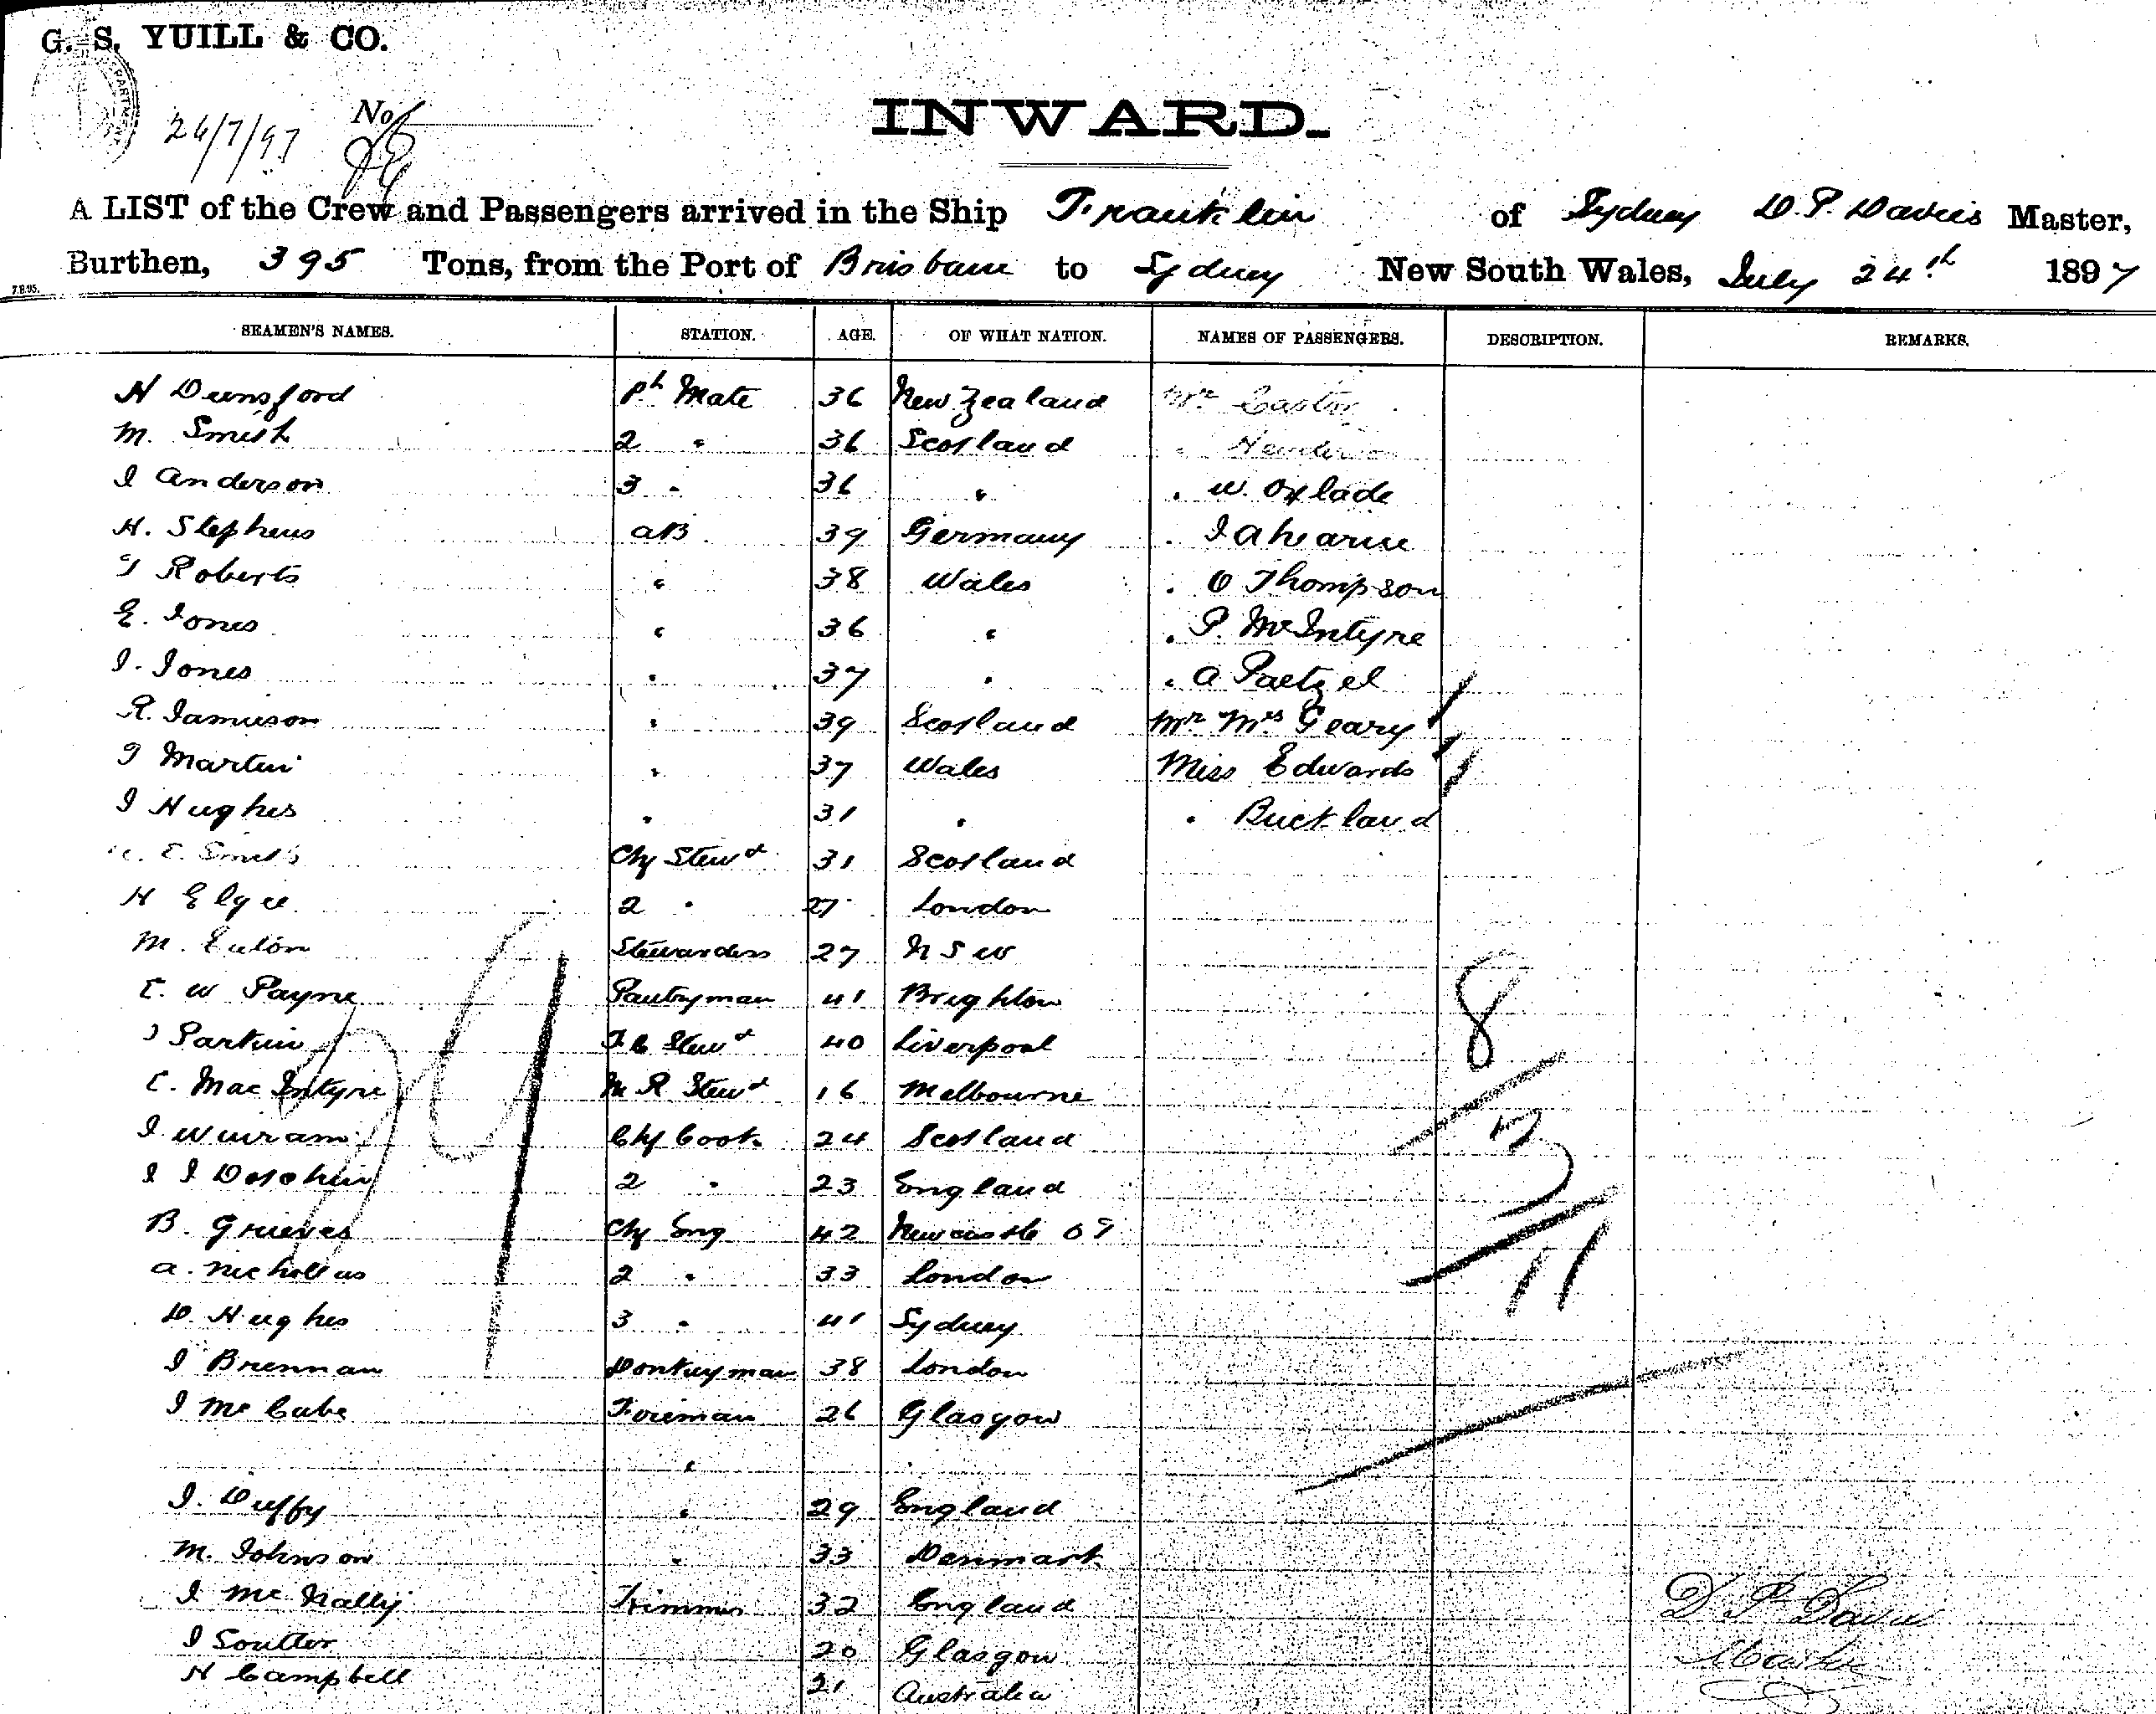 G. S. YUILL & CO.
24/7/97 No
INWARD.
A LIST of the Crew and Passengers arrived in the Ship Franklin of Sydney D. P. Davies Master,
Burthen, 395 Tons, from the Port of Brisbane to Sydney New South Wales, July 24th 1897
7.8.95.
SEAMEN'S NAMES. STATION. AGE. OF WHAT NATION. NAMES OF PASSENGERS. DESCRIPTION. REMARKS.
H Dunsford Mate 36 New Zealand Mr Castor
M. Smith 2 " 36 Scotland " Henderson
J Anderson 3 " 36 " " W. Oxlade
H. Stephens AB 39 Germany " J Ahearne
J Roberts " 38 Wales " O Thompson
E. Jones " 36 " " P. McIntyre
J. Jones " 37 " " A Paetzel
R. Jamieson " 39 Scotland Mr Mrs Geary
J Martin " 37 Wales Miss Edwards
J Hughes " 31 " " Buckland
E. Smith Chf Stewd 31 Scotland
H Elgee 2 " 27 London
M. Eulon Stewardess 27 N S W
C. W Payne Pantryman 41 Brighton
J Parkin F. C Stewd 40 Liverpool
C. MacIntyre M R Stewd 16 Melbourne
J Chf Cook 24 Scotland
J J Dolphin 2 " 23 England
B. Grieves Chf Eng 42 Newcastle
A. Nichollas 2 " 33 London
D. Hughes 3 " 41 Sydney
J Brennan Donkeyman 38 London
J McCabe Fireman 26 Glasgow
"
J. Duffy " 29 England
M. Johnson " 33 Denmark
J McNally Trimmer 32 England
J Soutter 20 Glasgow
H Campbell 21 Australia
29
8
3
11
D. P. Davies
Master